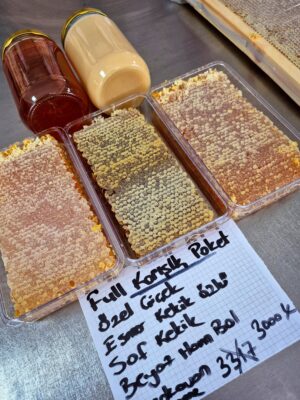 Full Karışık Paket
Özel Çiçek
Esmer Kekik
Saf Kekik
Beyaz Ham Bal
33/7 3000